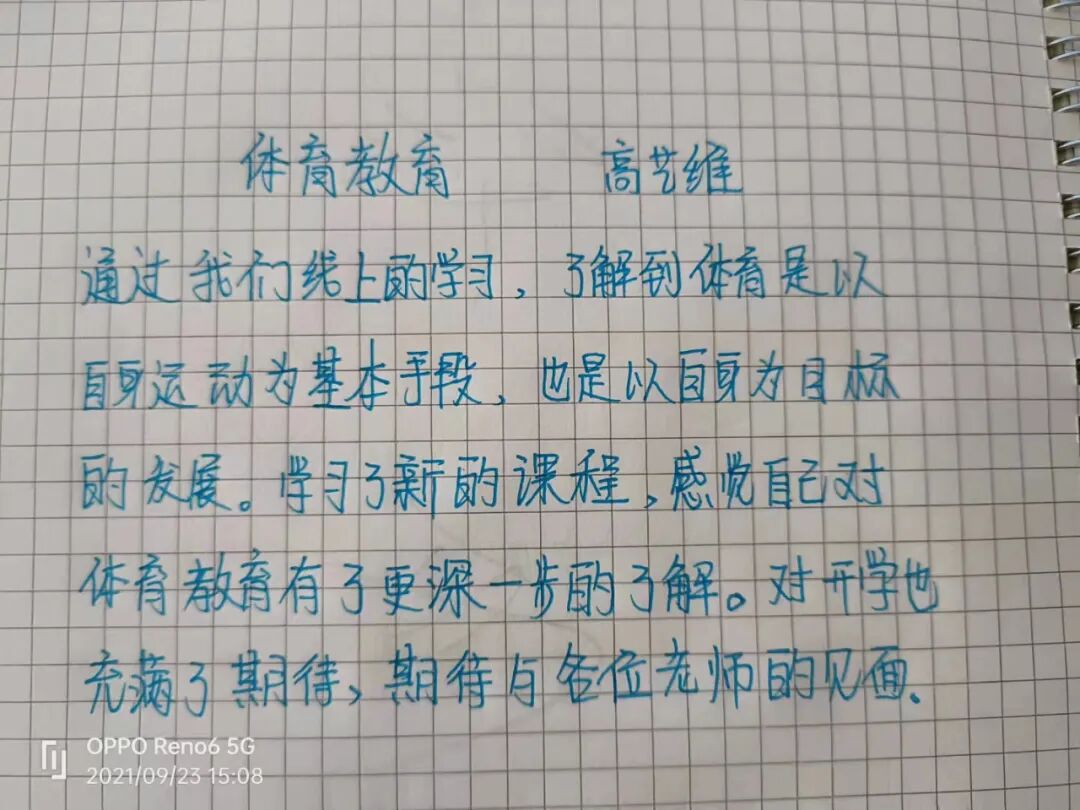 体育教育 高艺维
通过我们线上的学习，了解到体育是以
自身运动为基本手段，也是以自身为目标
的发展。学习了新的课程，感觉自己对
体育教育有了更深一步的了解。对开学也
充满了期待，期待与各位老师的见面.
OPPO Reno6 5G
2021/09/23 15:08